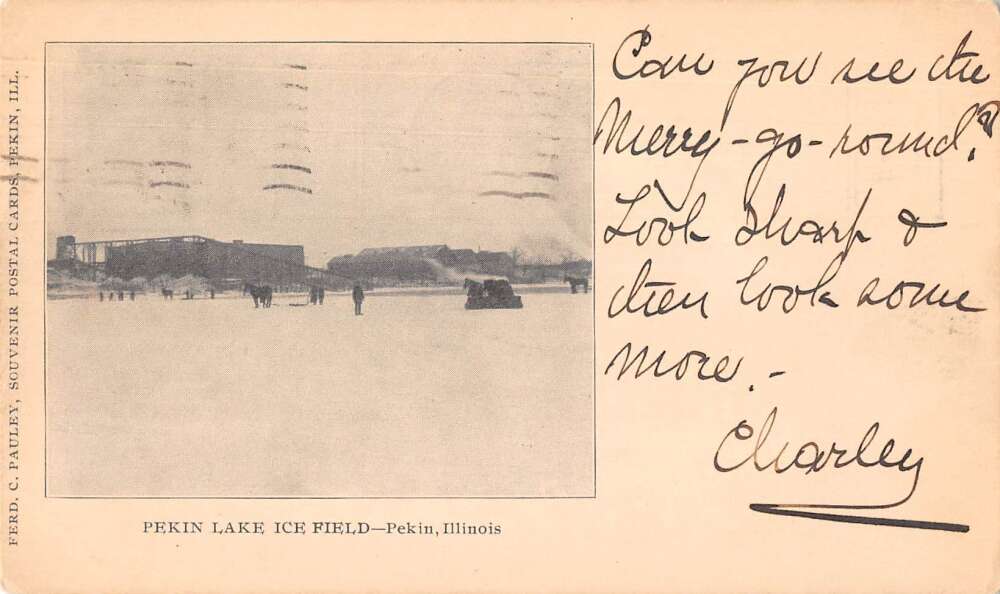 FERD. C. PAULEY, SOUVENIR POSTAL CARDS, PEKIN, ILL.
Can you see the
Merry-go-round?
Look sharp &
then look some
more.-
Charley
PEKIN LAKE ICE FIELD—Pekin, Illinois